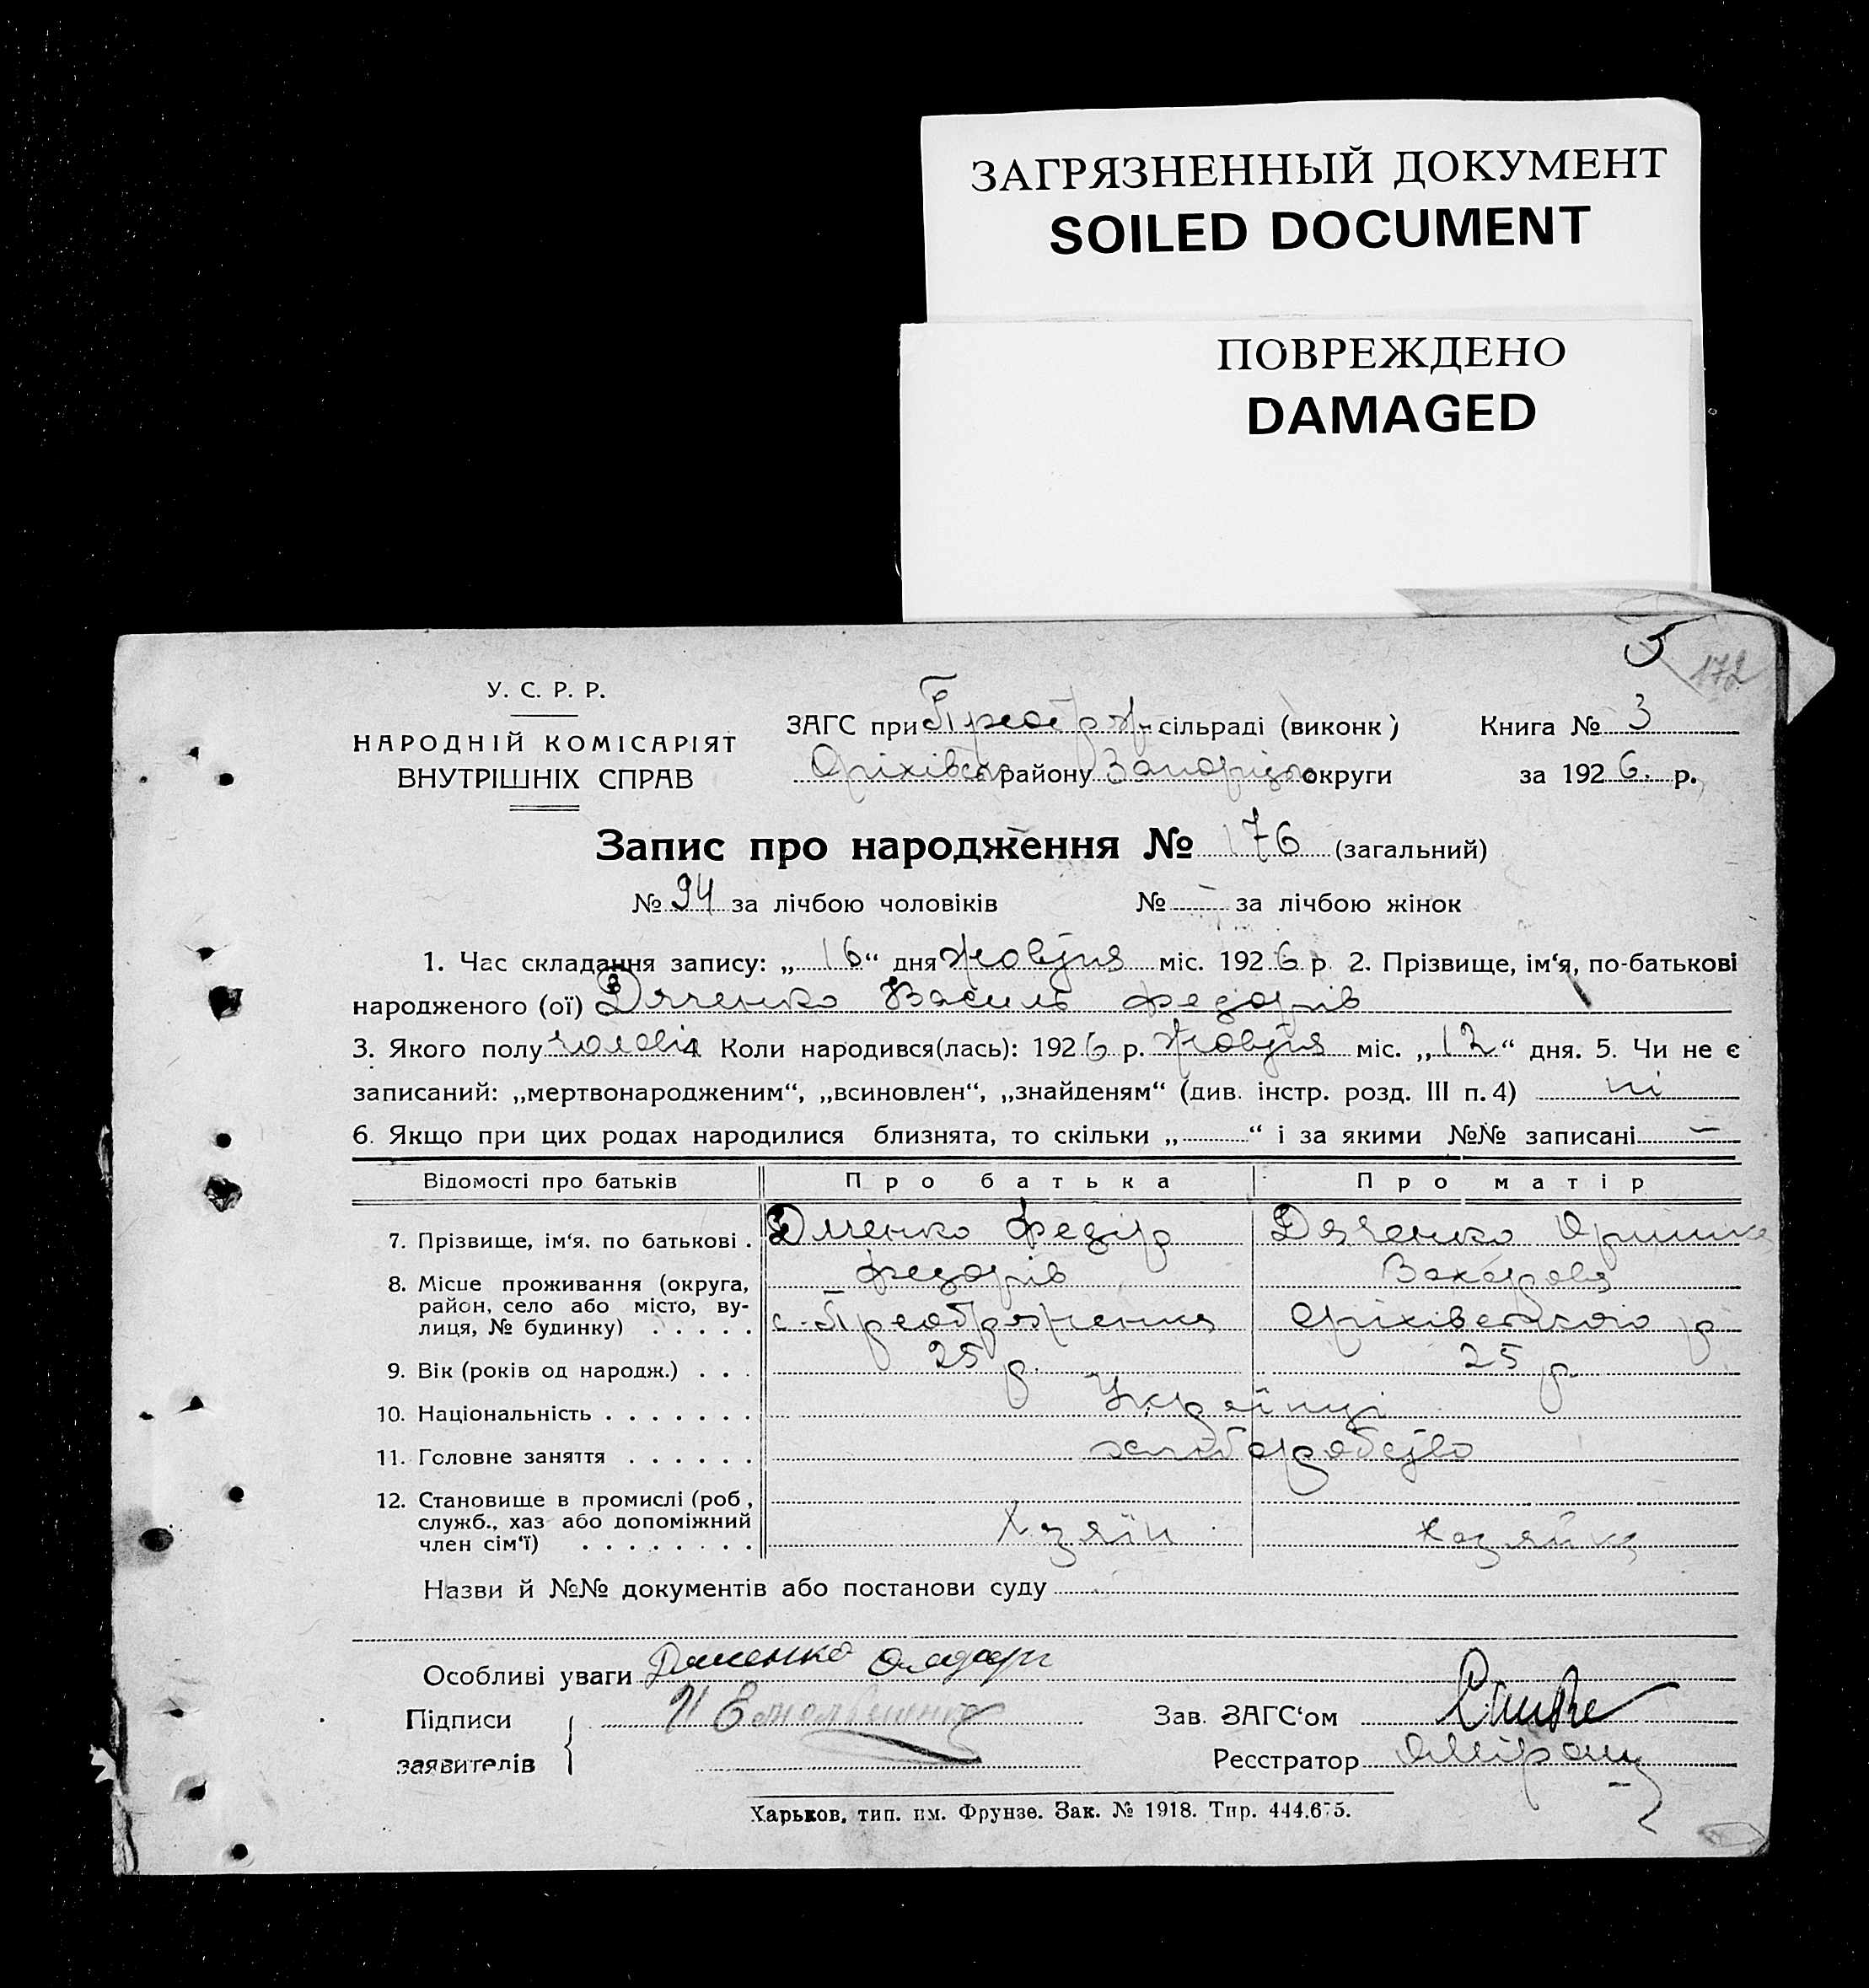 ЗАГРЯЗНЕННЫЙ ДОКУМЕНТ
SOILED DOCUMENT
ПОВРЕЖДЕНО
DAMAGED
172
У. С. Р. Р.
НАРОДНІЙ КОМІСАРІЯТ
ВНУТРІШНІХ СПРАВ
ЗАГС при Преображ. сільраді (виконк)
Книга № 3
Оріхівськ району Запорізьк округи
за 1926. р.
Запис про народження № 176 (загальний)
№ 94 за лічбою чоловіків № — за лічбою жінок
1. Час складання запису: „ 16 “ дня жовтня міс. 1926 р. 2. Прізвище, ім‘я, по-батькові
народженого (ої) Дяченко Василь Федорів
3. Якого полу чолові 4. Коли народився(лась): 1926 р. Жовтня міс. „ 12 “ дня. 5. Чи не є
записаний: „мертвонародженим“, „всиновлен“, „знайденям“ (див. інстр. розд. III п. 4) ні
6. Якщо при цих родах народилися близнята, то скільки „ “ і за якими №№ записані —
Відомості про батьків Про батька Про матір
7. Прізвище, ім‘я, по батькові . Дяченко Федір Дяченко Оришка
Федорів Захарова
8. Місце проживання (округа,
район, село або місто, ву-
лиця, № будинку) . . . . . с. Преображення Оріхівського р
9. Вік (років од народж.) . . . 25 р. 25 р.
10. Національність . . . . . . . Українці
11. Головне заняття . . . . . . хліборобство
12. Становище в промислі (роб.,
служб., хаз або допоміжний
член сім‘ї) . . . . . . . . Хзяїн хазяйка
Назви й №№ документів або постанови суду
Особливі уваги Дяченко
Підписи
заявителів
Зав. ЗАГС‘ом
Реєстратор
Харьков, тип. им. Фрунзе. Зак. № 1918. Тир. 444.675.